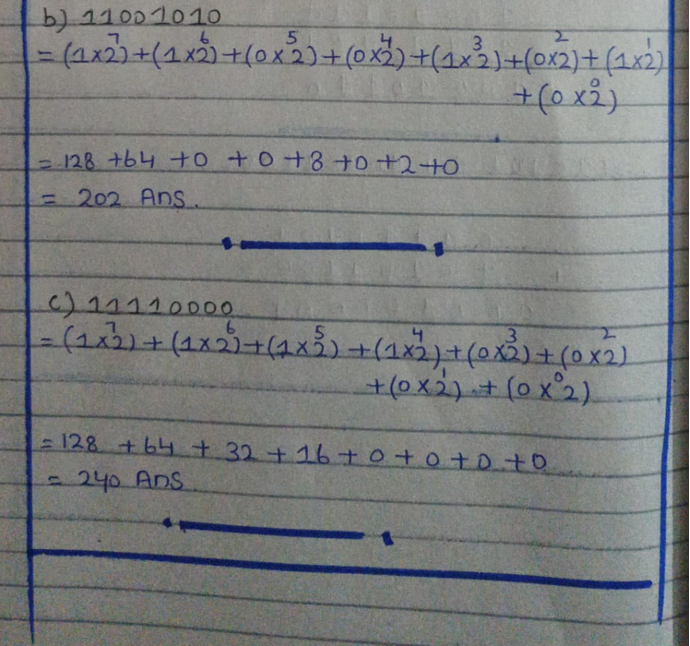 b) 11001010
= (1×2⁷)+(1×2⁶)+(0×2⁵)+(0×2⁴)+(1×2³)+(0×2²)+(1×2¹)
+(0×2⁰)
= 128 +64 +0 +0+8+0+2+0
= 202 Ans.
c) 11110000
= (1×2⁷)+(1×2⁶)+(1×2⁵)+(1×2⁴)+(0×2³)+(0×2²)
+(0×2¹)+(0×2⁰)
= 128 +64 + 32 +16+0+0+0+0
= 240 Ans